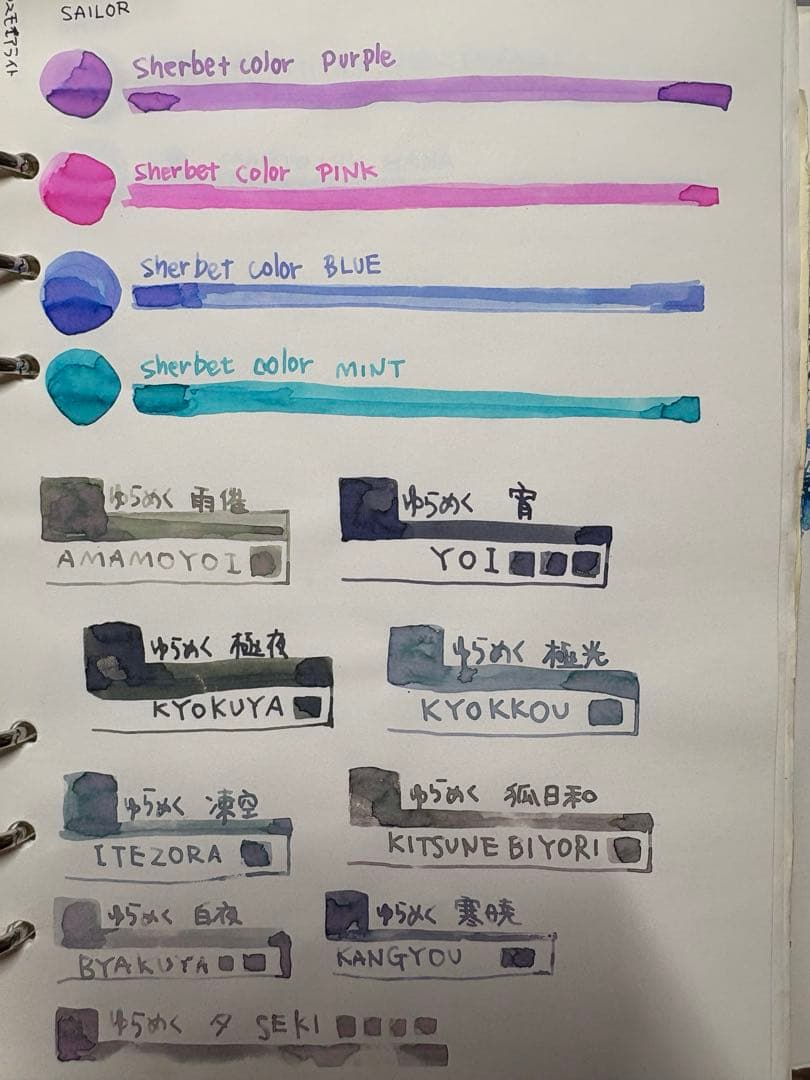 SAILOR
Sherbet color Purple
Sherbet color PINK
Sherbet color BLUE
Sherbet color MINT
ゆらめく 雨催
AMAMOYOI
ゆらめく 宵
YOI
ゆらめく 極夜
KYOKUYA
ゆらめく 極光
KYOKKOU
ゆらめく 凍空
ITEZORA
ゆらめく 狐日和
KITSUNEBIYORI
ゆらめく 白夜
BYAKUYA
ゆらめく 寒暁
KANGYOU
ゆらめく 夕 SEKI